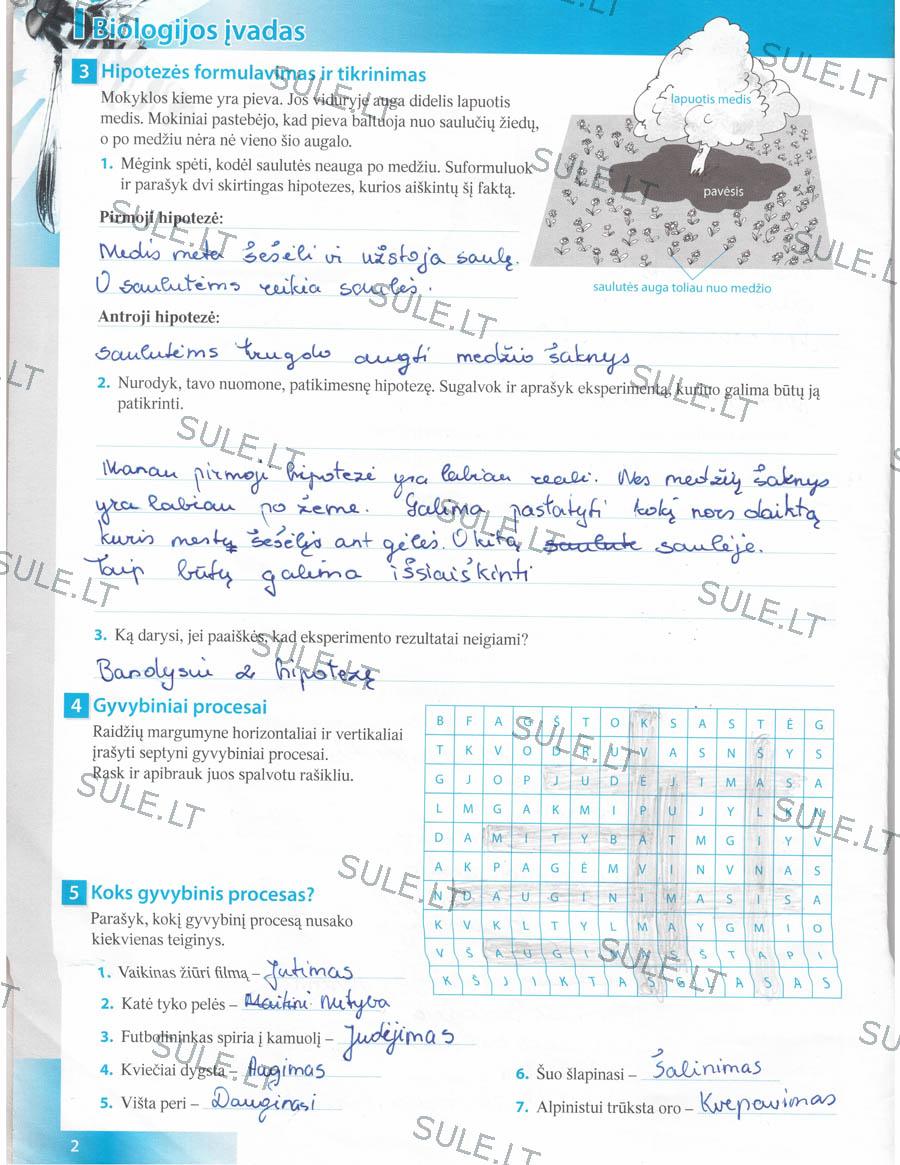 Biologijos įvadas
3 Hipotezės formulavimas ir tikrinimas
Mokyklos kieme yra pieva. Jos viduryje auga didelis lapuotis
medis. Mokiniai pastebėjo, kad pieva baltuoja nuo saulučių žiedų,
o po medžiu nėra nė vieno šio augalo.
1. Mėgink spėti, kodėl saulutės neauga po medžiu. Suformuluok
ir parašyk dvi skirtingas hipotezes, kurios aiškintų šį faktą.
lapuotis medis
pavėsis
saulutės auga toliau nuo medžio
Pirmoji hipotezė:
Medis meta šešėlį ir užstoja saulę.
O saulutėms reikia saulės.
Antroji hipotezė:
saulutėms trugdo augti medžio šaknys
2. Nurodyk, tavo nuomone, patikimesnę hipotezę. Sugalvok ir aprašyk eksperimentą, kuriuo galima būtų ją
patikrinti.
Manau pirmoji hipotezė yra labiau reali. Nes medžių šaknys
yra labiau po žeme. Galima pastatyti kokį nors daiktą
kuris mestų šešėlį ant gėlės. O kitą saulutė saulėje.
Taip būtų galima išsiaiškinti
3. Ką darysi, jei paaiškės, kad eksperimento rezultatai neigiami?
Bandysiu 2 hipotezę
4 Gyvybiniai procesai
Raidžių margumyne horizontaliai ir vertikaliai
įrašyti septyni gyvybiniai procesai.
Rask ir apibrauk juos spalvotu rašikliu.
B F A G Š T O K S A S T Ė G
T K V O D R U V A S N Š Y S
G J O P J U D Ė J I M A S A
L M G A K M I P U J Y L K N
D A M I T Y B A T M G I Y V
A K P A G Ė M V I N V N A S
N D A U G I N I M A S I S A
K V K L T Y L M A Y G M I O
V Š A U G I M A S Š T A P I
K Š J I K T A S G L A S A S
5 Koks gyvybinis procesas?
Parašyk, kokį gyvybinį procesą nusako
kiekvienas teiginys.
1. Vaikinas žiūri filmą – Jutimas
2. Katė tyko pelės – Maitini Mityba
3. Futbolininkas spiria į kamuolį – Judėjimas
4. Kviečiai dygsta – Augimas
5. Višta peri – Dauginasi
6. Šuo šlapinasi – Šalinimas
7. Alpinistui trūksta oro – Kvepavimas
2
SULE.LT